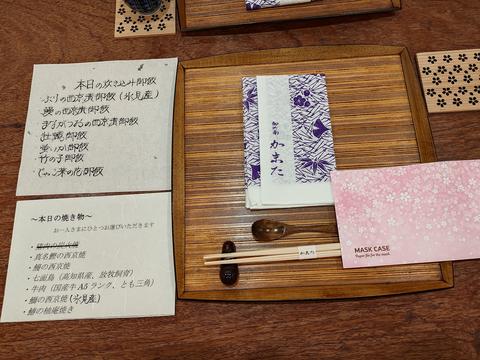 本日の炊き込み御飯
・ぶりの西京漬御飯(氷見産)
の西京漬御飯
・まながつおの西京漬御飯
・牡蠣御飯
・蛍いか御飯
・竹の子御飯
・じゃこ菜の花御飯
～本日の焼き物～
お一人さまにひとつお選びいただきます
の炭火焼
・真名鰹の西京焼
の西京焼
・七面鳥(高知県産、放牧飼育)
・牛肉(国産牛A5ランク、とも三角)
・鰤の西京焼(氷見産)
の柚庵焼き
かまた
かまた
MASK CASE
Paper file for the mask